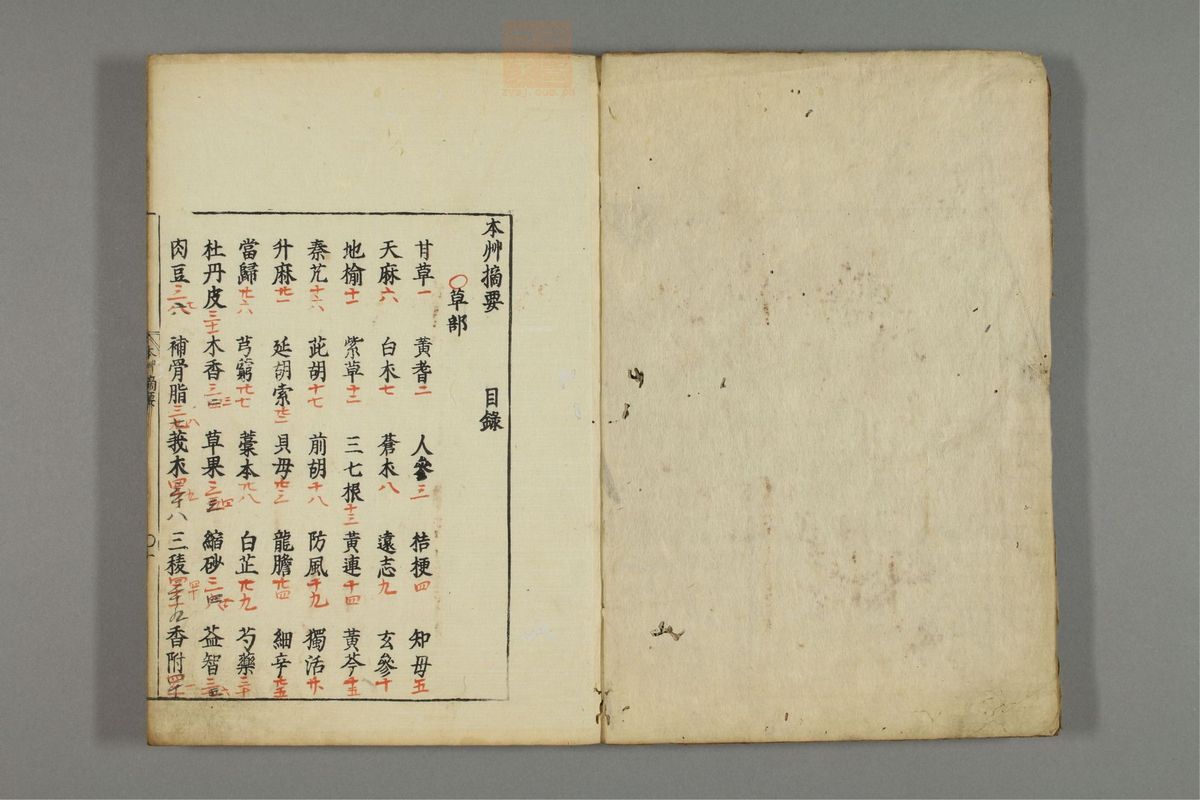 本艸摘要 目錄
草部
甘草一 黃耆二 人參三 桔梗四 知母五
天麻六 白朮七 蒼朮八 遠志九 玄參十
地榆十一 紫草十二 三七根十三 黃連十四 黃芩十五
秦艽十六 茈胡十七 前胡十八 防風十九 獨活廿
升麻廿一 延胡索廿二 貝母廿三 龍膽廿四 細辛廿五
當歸廿六 芎藭廿七 藁本廿八 白芷廿九 芍藥三十
杜丹皮三十一 木香 草果 縮砂 益智
肉豆 補骨脂 莪朮 三稜 香附
本艸摘要